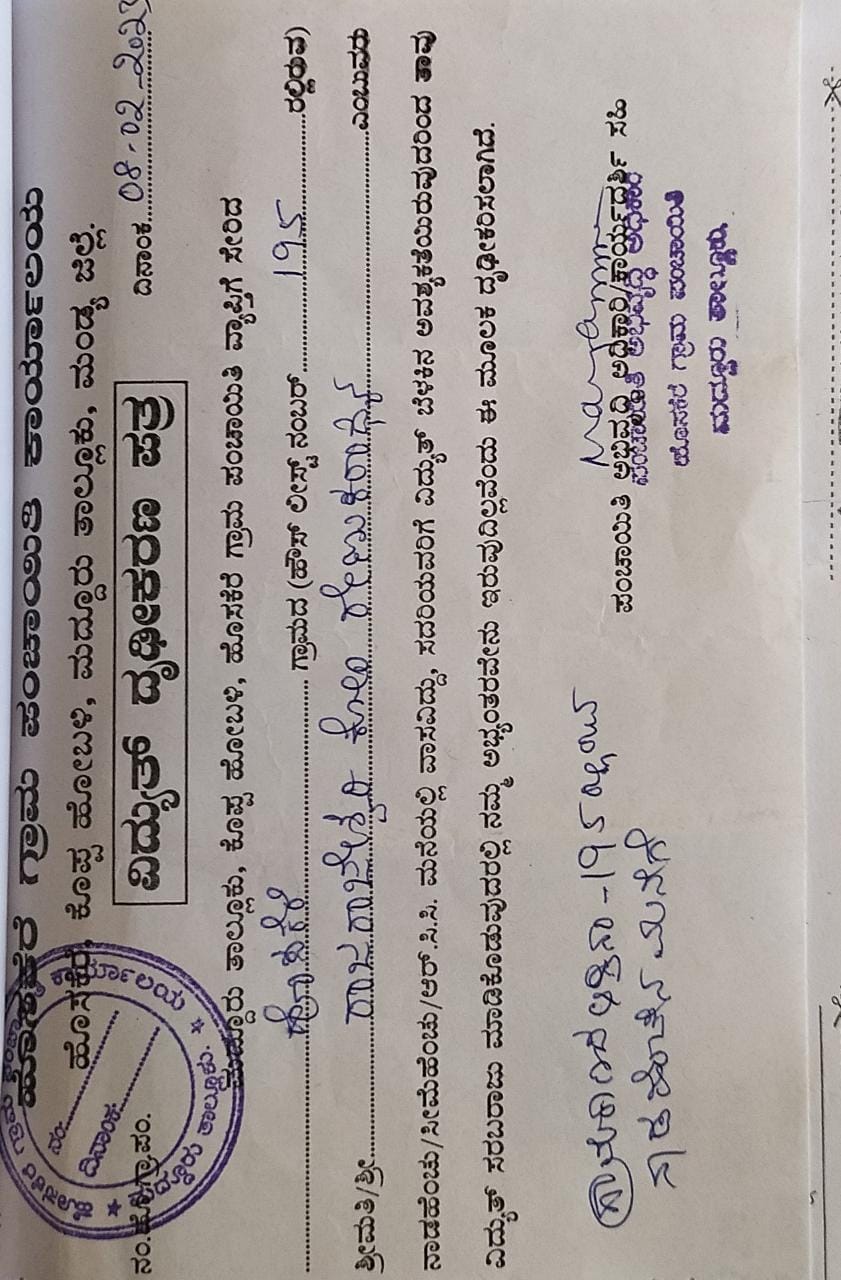 ಹೊಸಕೆರೆ ಗ್ರಾಮ ಪಂಚಾಯಿತಿ ಕಾರ್ಯಾಲಯ
ಹೊಸಕೆರೆ, ಕೊಪ್ಪ ಹೋಬಳಿ, ಮದ್ದೂರು ತಾಲ್ಲೂಕು, ಮಂಡ್ಯ ಜಿಲ್ಲೆ.
ನಂ.ಹೊಕೆಗ್ರಾಪಂ. ದಿನಾಂಕ 08-02-2023
ವಿದ್ಯುತ್ ದೃಢೀಕರಣ ಪತ್ರ
ಮದ್ದೂರು ತಾಲ್ಲೂಕು, ಕೊಪ್ಪ ಹೋಬಳಿ, ಹೊಸಕೆರೆ ಗ್ರಾಮ ಪಂಚಾಯಿತಿ ವ್ಯಾಪ್ತಿಗೆ ಸೇರಿದ
ಹೊಸಕೆರೆ ಗ್ರಾಮದ (ಹೌಸ್ ಲೀಸ್ಟ್ ನಂಬರ್ 195 ರಲ್ಲಿರುವ)
ಶ್ರೀಮತಿ/ಶ್ರೀ ರಾಜರಾಜೇಶ್ವರಿ ಕೋಂ ರೇಣುಕರಾಧ್ಯ ಎಂಬುವರು
ನಾಡಹೆಂಚು/ಸೀಮೆಹೆಂಚು/ಆರ್.ಸಿ.ಸಿ. ಮನೆಯಲ್ಲಿ ವಾಸವಿದ್ದು, ಸದರಿಯವರಿಗೆ ವಿದ್ಯುತ್ ಬೆಳಕಿನ ಅವಶ್ಯಕತೆಯಿರುವುದರಿಂದ ತಾವು
ವಿದ್ಯುತ್ ಸರಬರಾಜು ಮಾಡಿಕೊಡುವುದರಲ್ಲಿ ನಮ್ಮ ಅಭ್ಯಂತರವೇನು ಇರುವುದಿಲ್ಲವೆಂದು ಈ ಮೂಲಕ ದೃಢೀಕರಿಸಲಾಗಿದೆ.
195
ನಾಡಹೆಂಚಿನ ಮನೆಗೆ
ಪಂಚಾಯಿತಿ ಅಭಿವೃದ್ಧಿ ಅಧಿಕಾರಿ/ಕಾರ್ಯದರ್ಶಿ ಸಹಿ
ಪಂಚಾಯಿತಿ ಅಭಿವೃದ್ಧಿ ಅಧಿಕಾರಿ
ಹೊಸಕೆರೆ ಗ್ರಾಮ ಪಂಚಾಯಿತಿ
ಮದ್ದೂರು ತಾಲ್ಲೂಕು.
ಹೊಸಕೆರೆ ಗ್ರಾಮ ಪಂಚಾಯಿತಿ ಕಾರ್ಯಾಲಯ
ನಂ.
ದಿನಾಂಕ
ಮದ್ದೂರು ತಾಲ್ಲೂಕು.